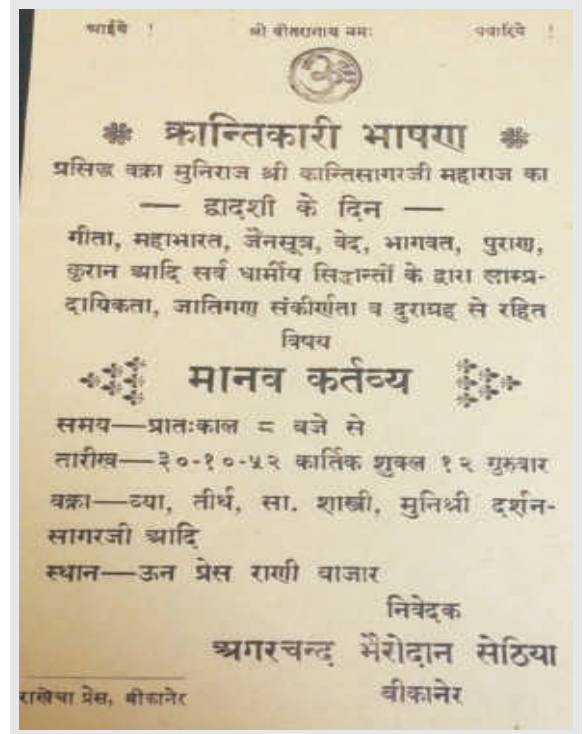 आईये ! श्री वीतरागाय नमः पधारिये !
ॐ
क्रान्तिकारी भाषण
प्रसिद्ध वक्ता मुनिराज श्री कान्तिसागरजी महाराज का
— द्वादशी के दिन —
गीता, महाभारत, जैनसूत्र, वेद, भागवत, पुराण,
कुरान आदि सर्व धार्मीय सिद्धान्तों के द्वारा साम्प्र-
दायिकता, जातिगण संकीर्णता व दुराग्रह से रहित
विषय
मानव कर्तव्य
समय—प्रातःकाल ८ बजे से
तारीख—३०-१०-५२ कार्तिक शुक्ल १२ गुरुवार
वक्ता—व्या, तीर्थ, सा. शास्त्री, मुनिश्री दर्शन-
सागरजी आदि
स्थान—ऊन प्रेस राणी बाजार
निवेदक
अगरचन्द भैरोदान सेठिया
बीकानेर
राखेचा प्रेस, बीकानेर